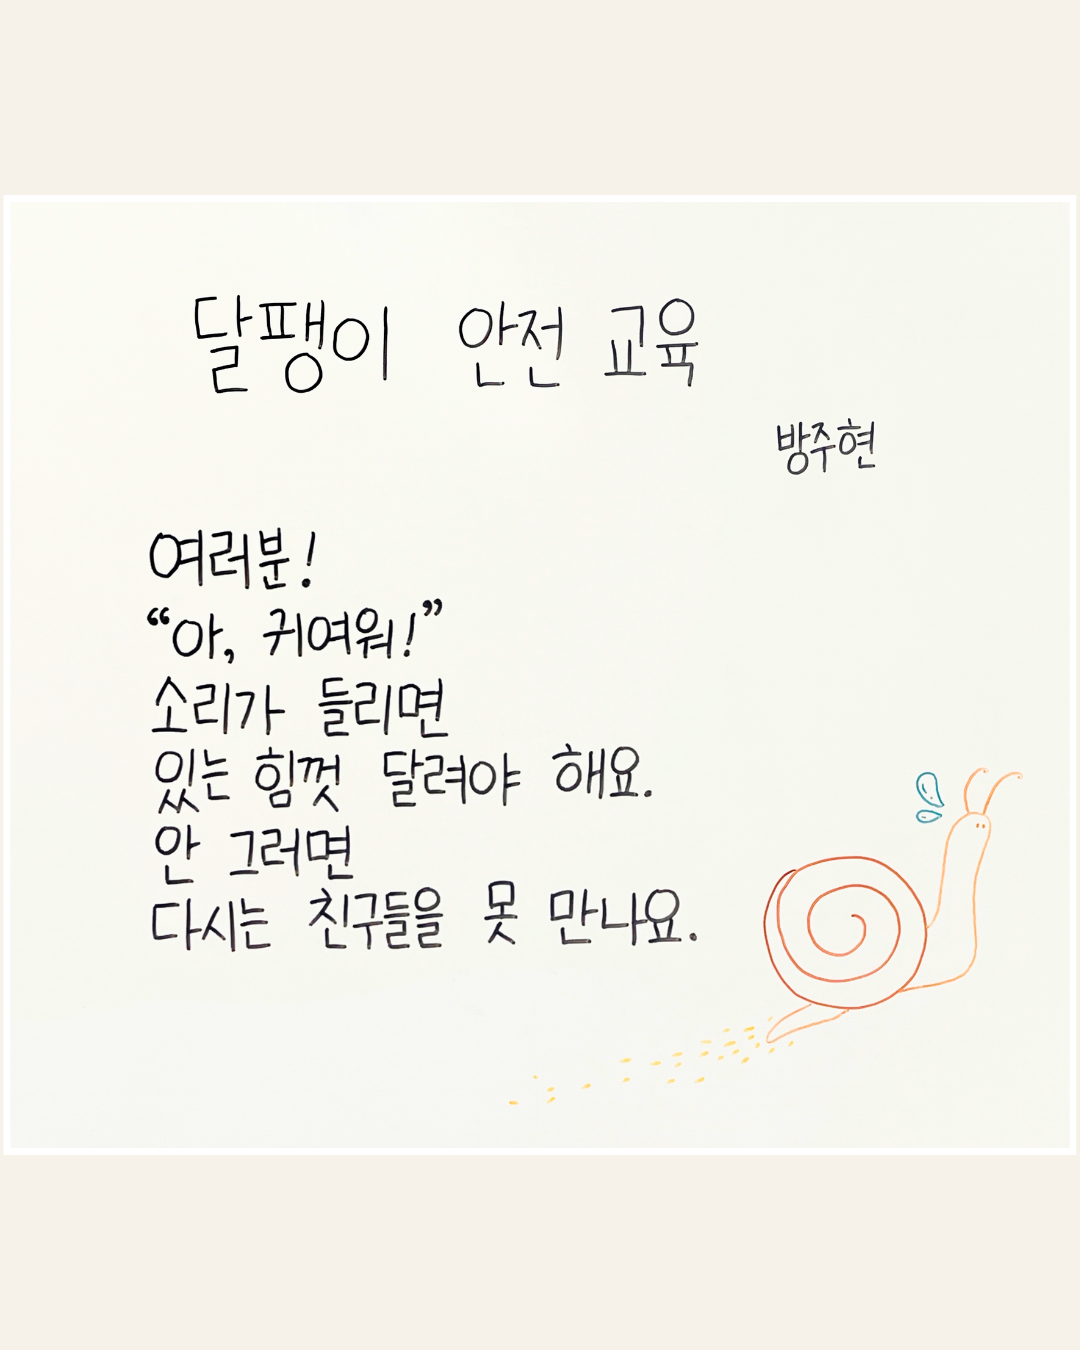 달팽이 안전 교육
방주현
여러분!
“아, 귀여워!”
소리가 들리면
있는 힘껏 달려야 해요.
안 그러면
다시는 친구들을 못 만나요.